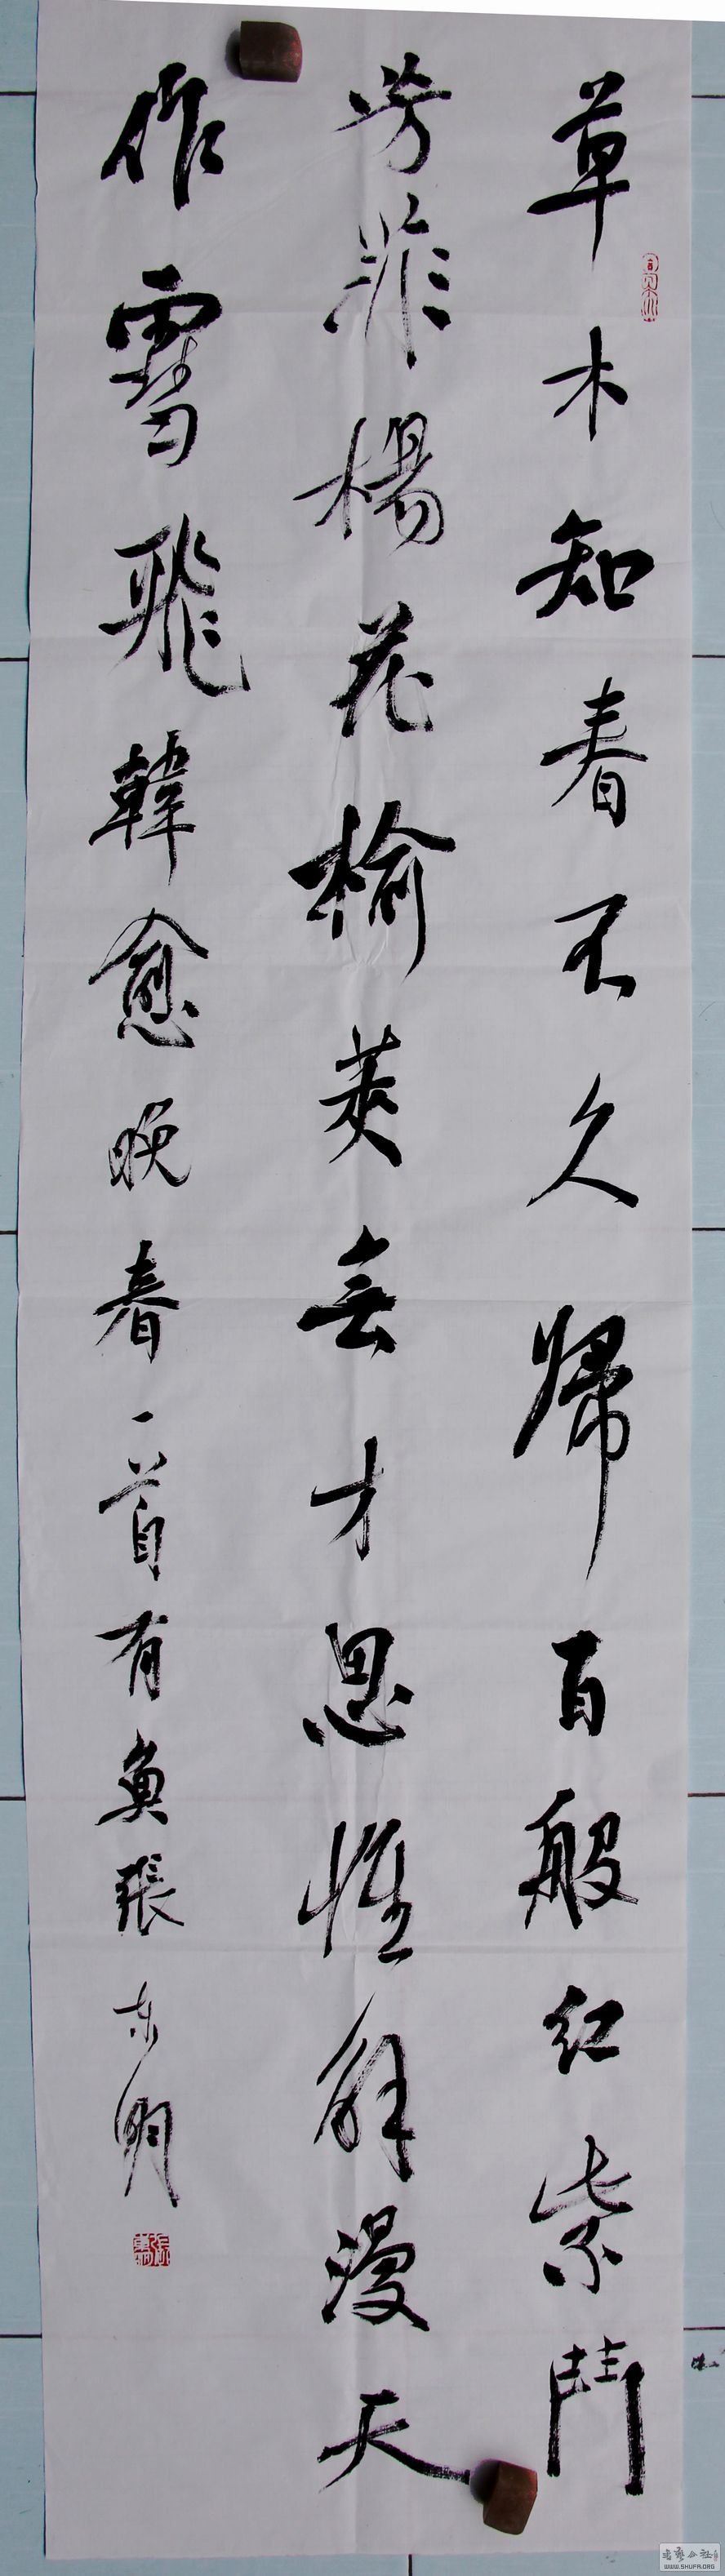 草木知春不久歸百般红紫鬥
芳菲楊花榆莢無才思惟解漫天
作雪飛韓愈晚春一首有魚張东明
WWW.SHUFA.ORG